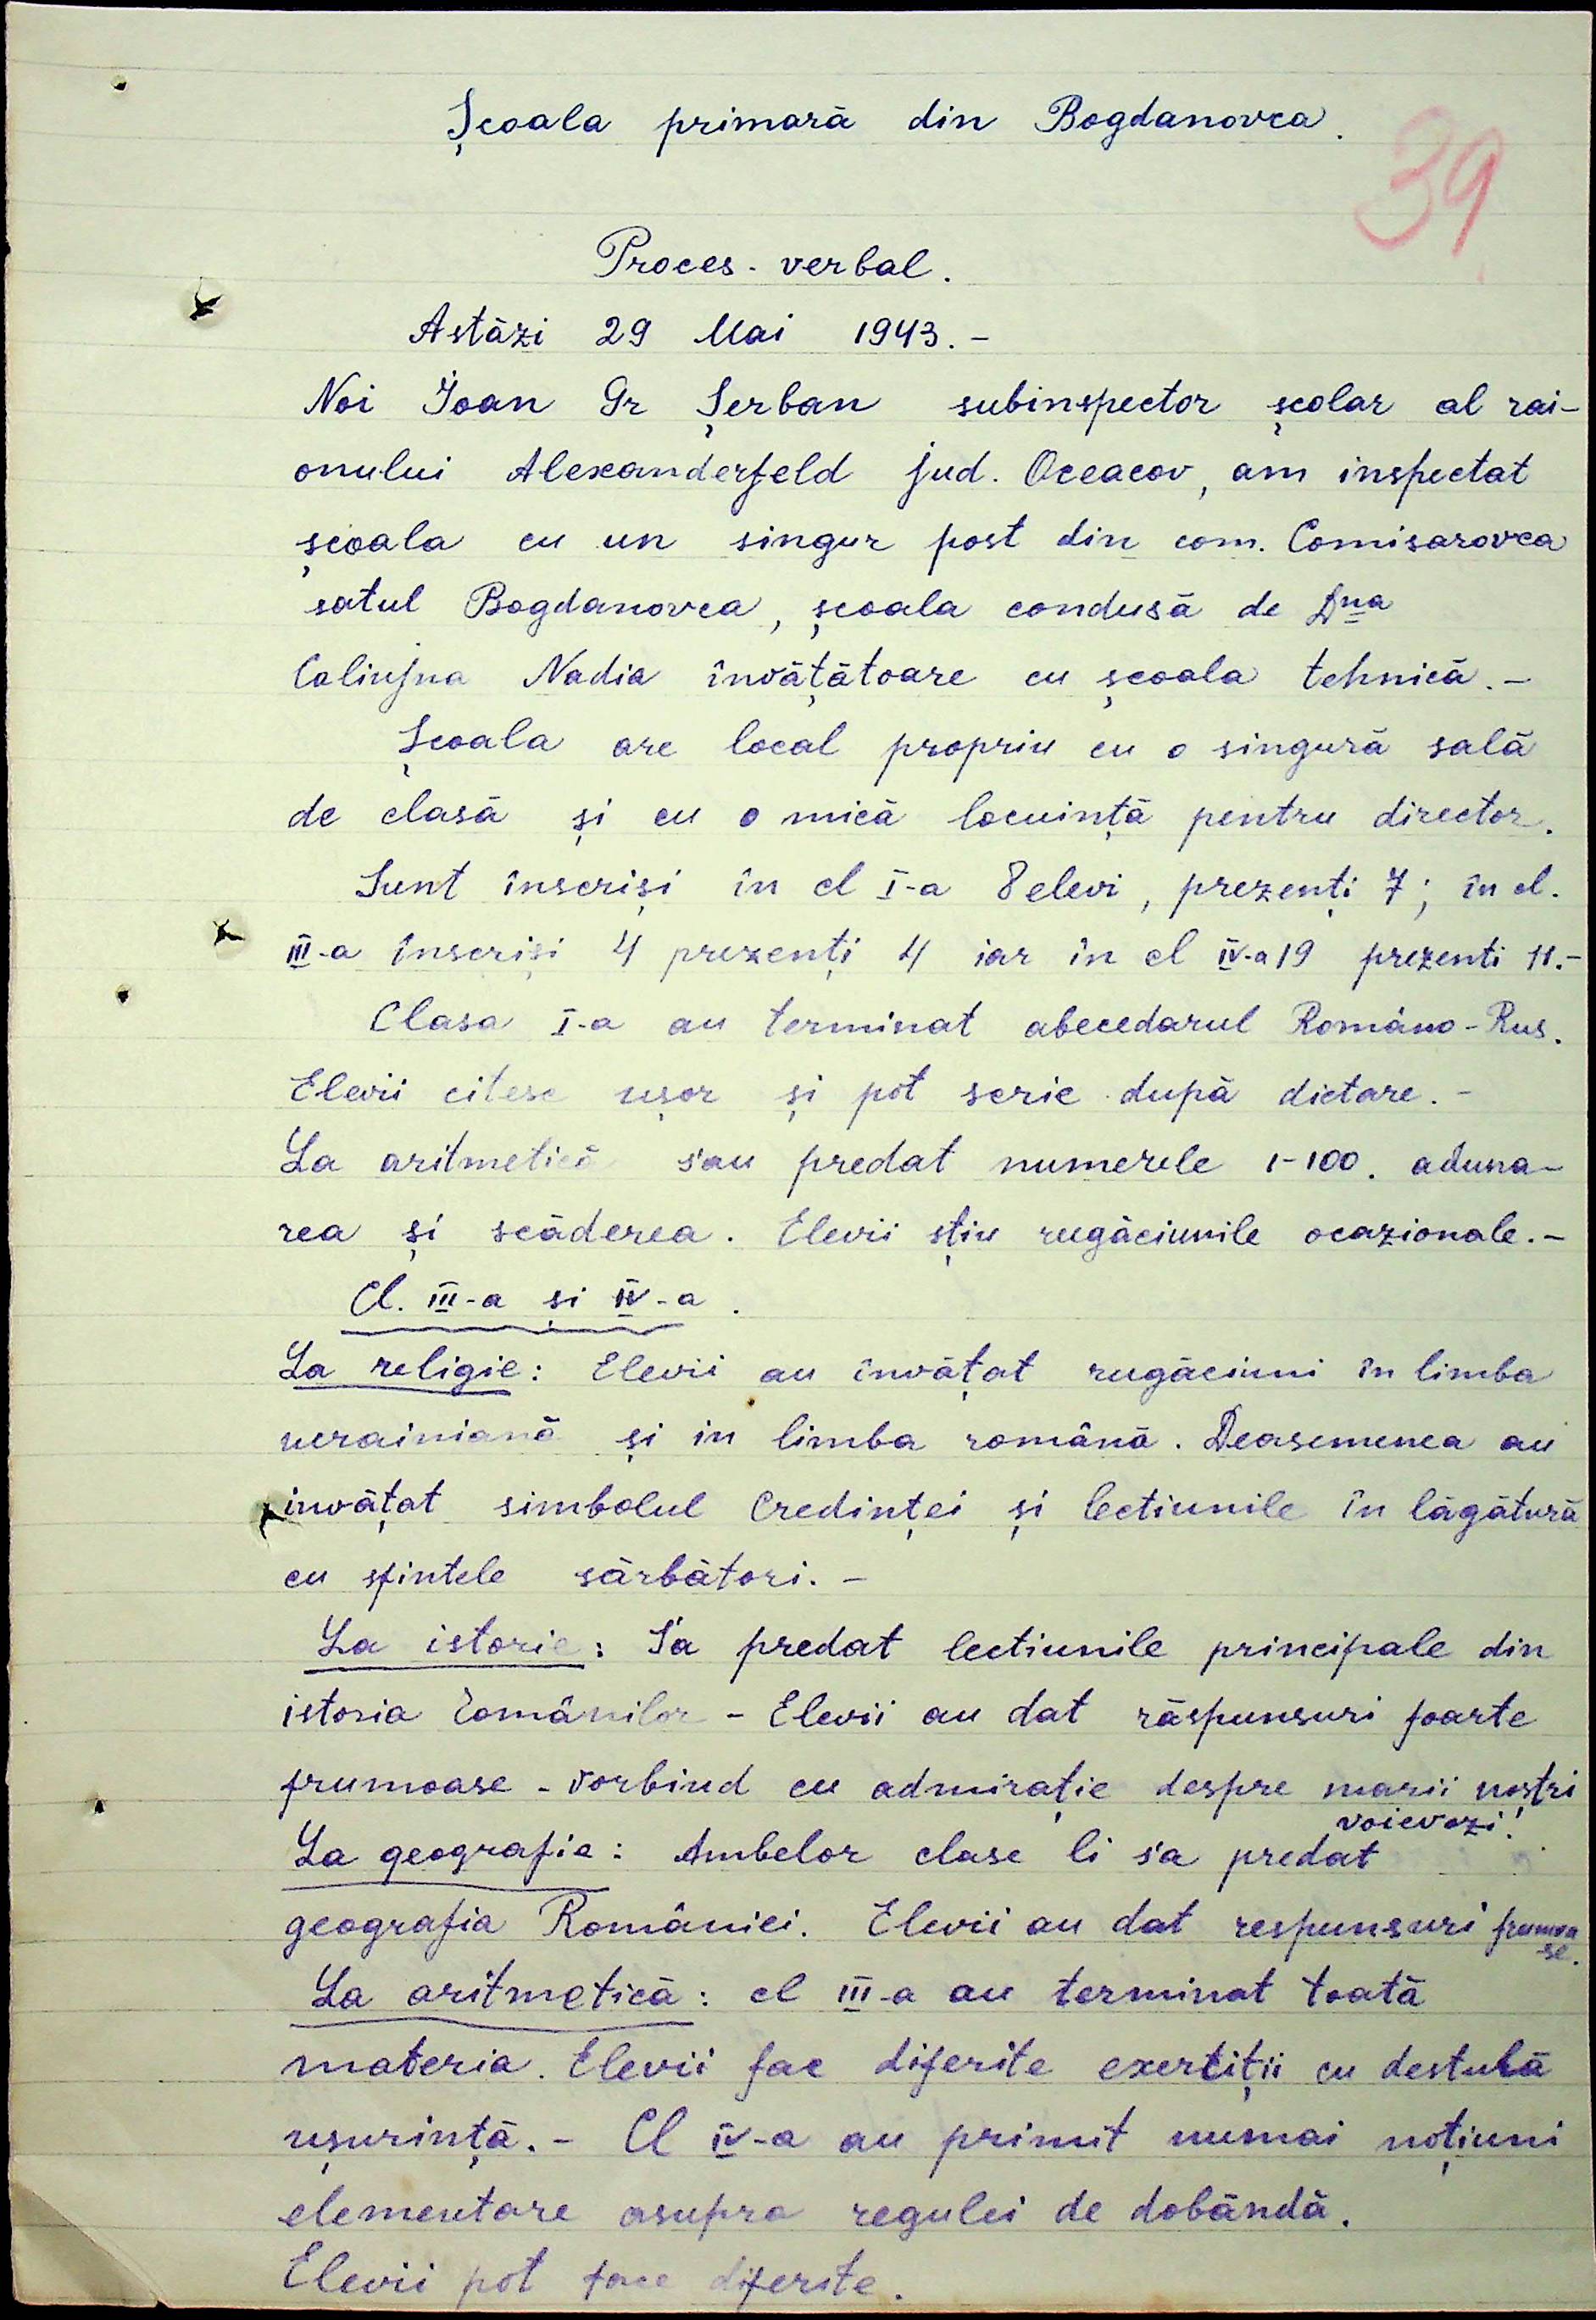 Școala primară din Bogdanovca.
39
Proces-verbal.
Astăzi 29 Mai 1943.-
Noi Ioan Gr Șerban subinspector școlar al rai-
onului Alexanderfeld jud. Oceacov, am inspectat
școala cu un singur post din com. Comisarovca
satul Bogdanovca, școala condusă de Dna
Caliujna Nadia învățătoare cu școala tehnică.-
Școala are local propriu cu o singură sală
de clasă și cu o mică locuință pentru director.
Sunt înscriși în cl I-a 8 elevi, prezenți 7; în cl.
III-a înscriși 4 prezenți 4 iar în cl IV-a 19 prezenti 11.-
Clasa I-a au terminat abecedarul Româno-Rus.
Elevii citesc ușor și pot scrie după dictare.-
La aritmetică s'au predat numerele 1-100. aduna-
rea și scăderea. Elevii știu rugăciunile ocazionale.-
Cl. III-a și IV-a.
La religie: Elevii au învățat rugăciuni în limba
ucrainiană și in limba română. Deasemenea au
invățat simbolul Credinței și lectiunile în lăgătură
cu sfintele sărbători.-
La istorie: S'a predat lectiunile principale din
istoria Românilor - Elevii au dat răspunsuri foarte
frumoase - vorbind cu admirație despre marii noștri
voievozi!
La geografie: Ambelor clase li s'a predat
geografia României. Elevii au dat respunsuri frumoa
se.
La aritmetică: cl III-a au terminat toată
materia. Elevii fac diferite exertiții cu destulă
ușurință.- Cl IV-a au primit numai noțiuni
elementare asupra regulei de dobândă.
Elevii pot face diferite.